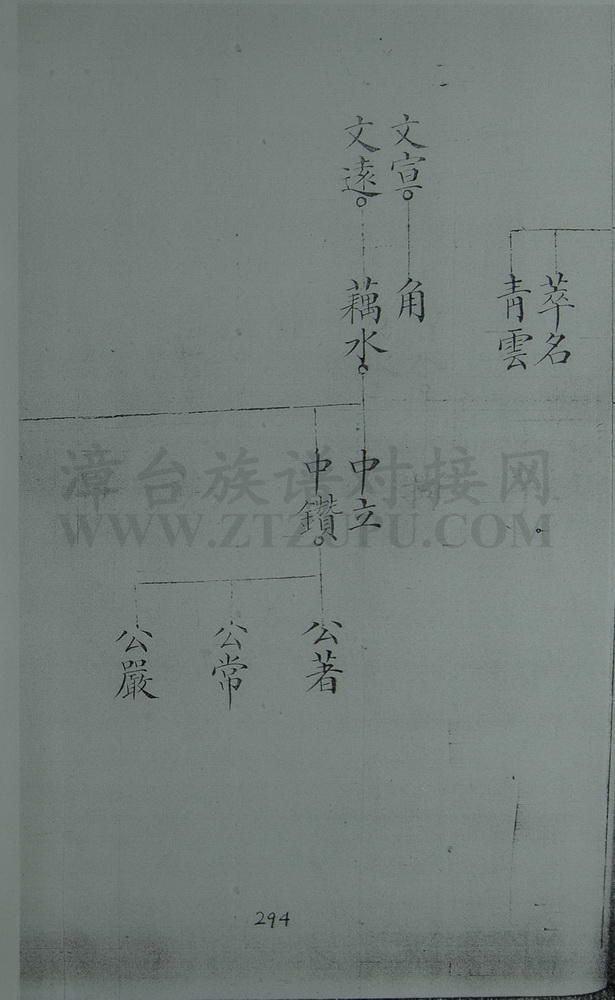 萃名
青雲
文宣
角
文遠
藕水
中立
中鑽
公著
公常
公嚴
漳台族谱对接网
WWW.ZTZUFU.COM
294